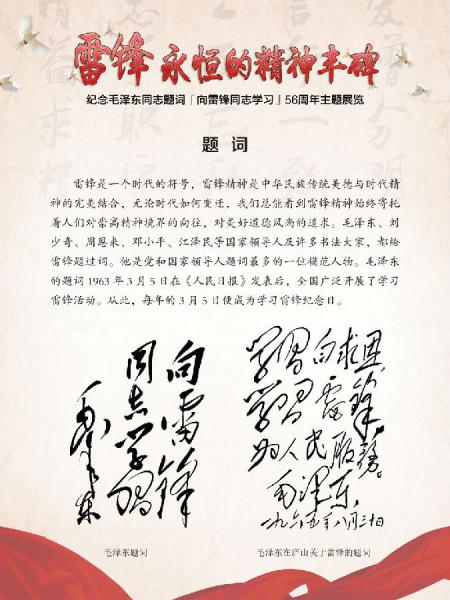 雷锋 永恒的精神丰碑
纪念毛泽东同志题词「向雷锋同志学习」56周年主题展览
题 词
雷锋是一个时代的符号，雷锋精神是中华民族传统美德与时代精
神的完美结合，无论时代如何变迁，我们总能看到雷锋精神始终寄托
着人们对崇高精神境界的向往，对美好道德风尚的追求。毛泽东、刘
少奇、周恩来、邓小平、江泽民等国家领导人及许多书法大家，都给
雷锋题过词。他是党和国家领导人题词最多的一位模范人物。毛泽东
的题词1963年3月5日在《人民日报》发表后，全国广泛开展了学习
雷锋活动。从此，每年的3月5日便成为学习雷锋纪念日。
向雷锋
同志学习
毛泽东
学习白求恩
学习雷锋
为人民服务。
毛泽东
毛泽东题词
毛泽东在庐山关于雷锋的题词